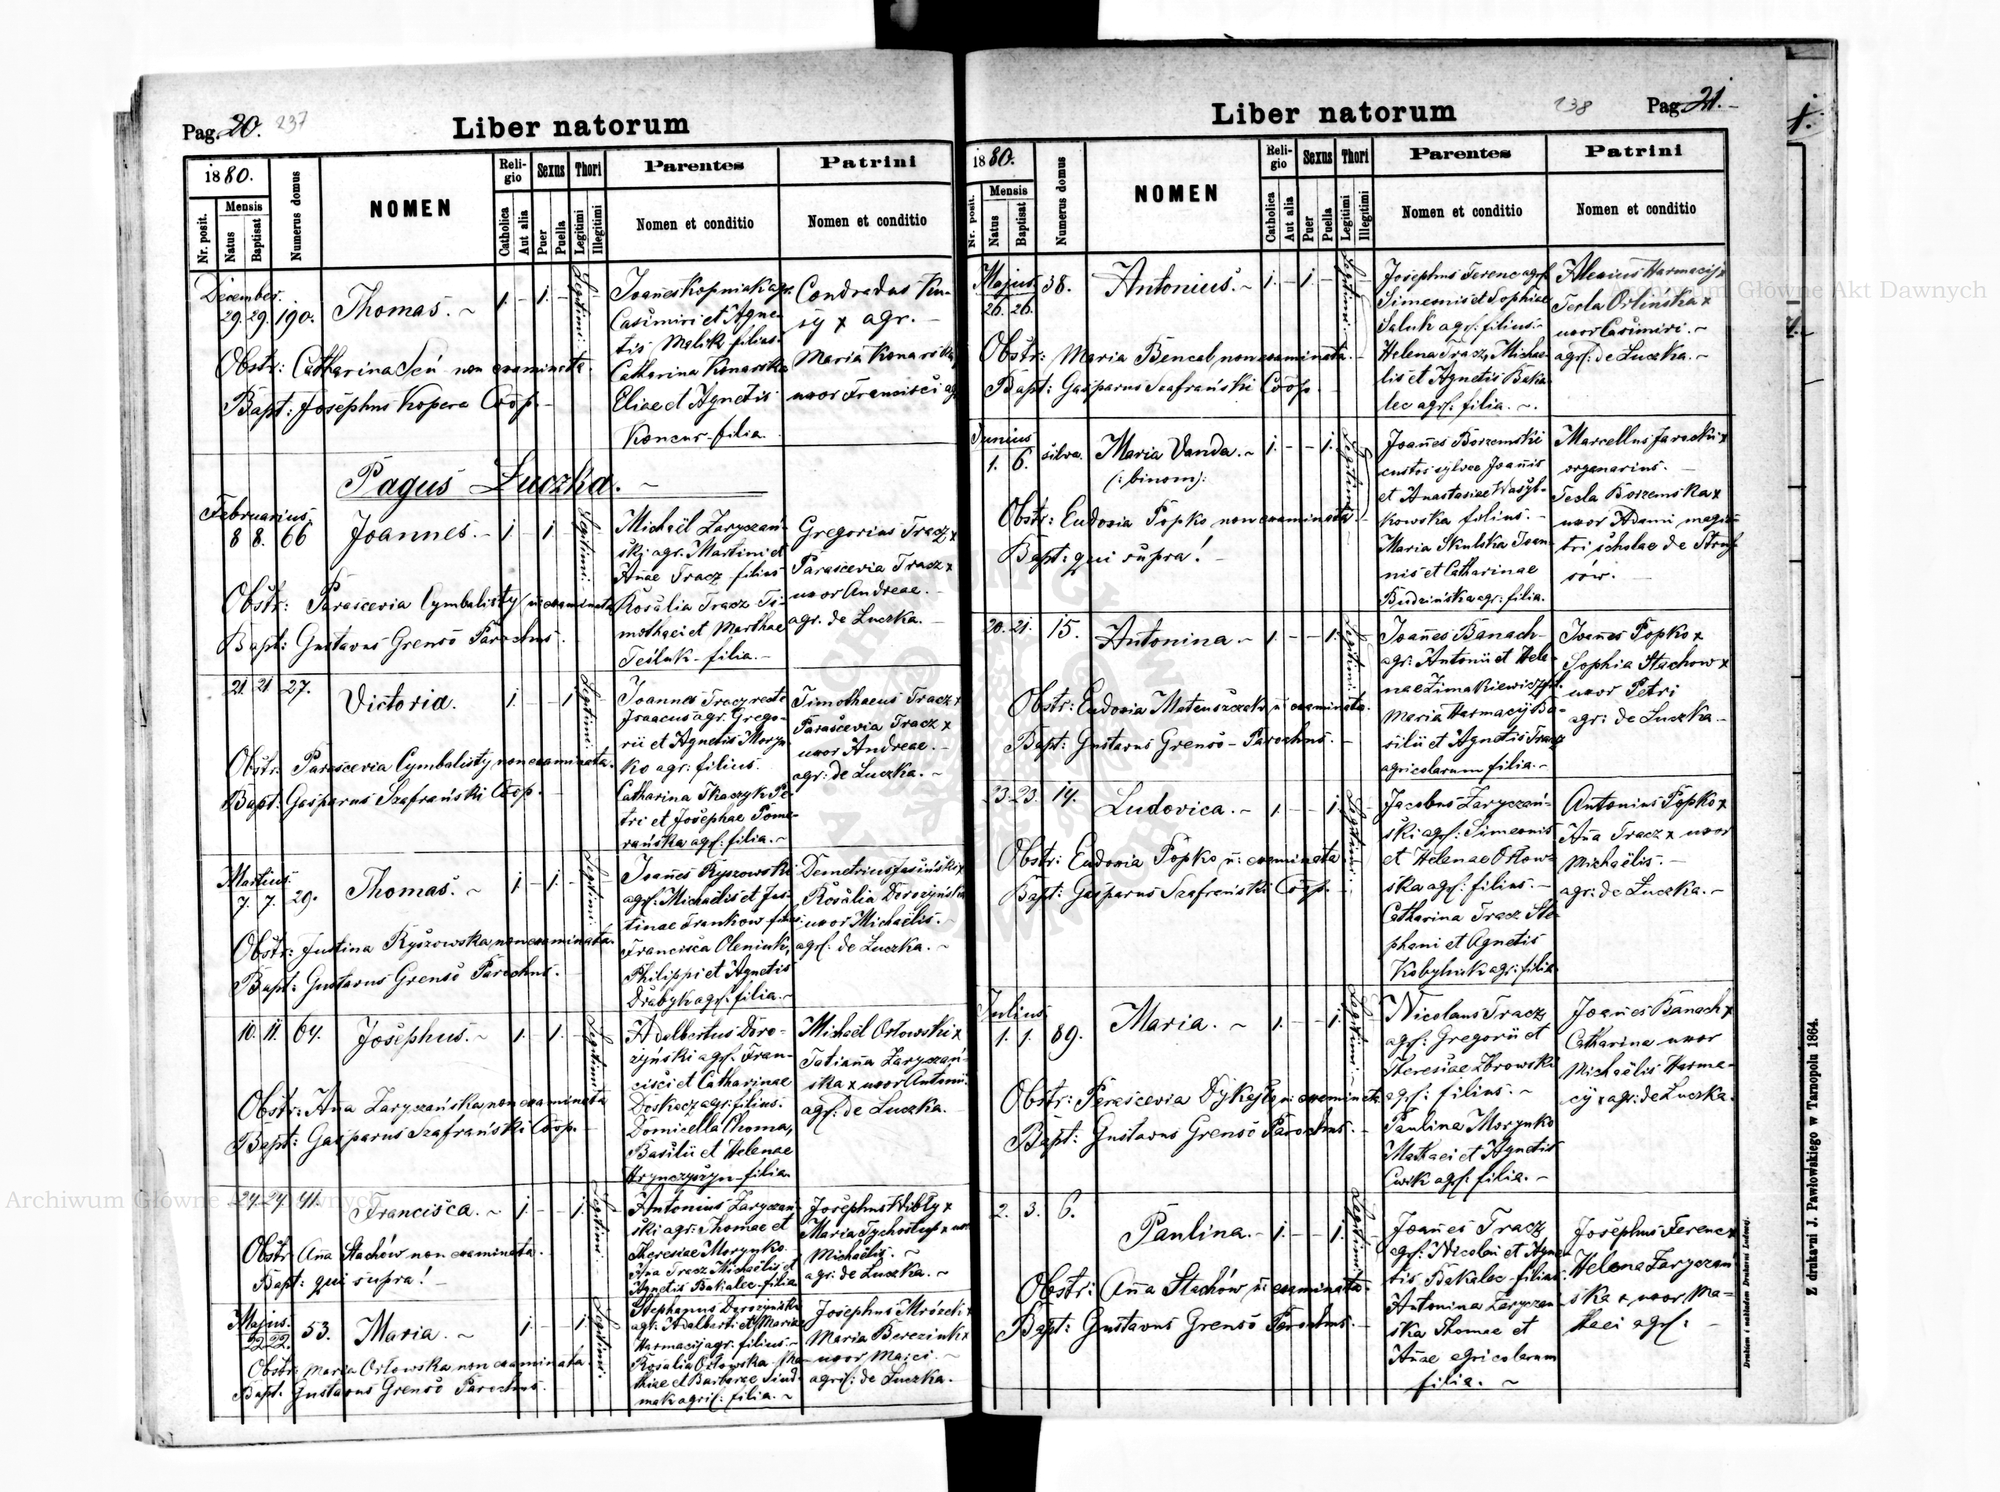 Pag. 20. 237
Liber natorum
1880.
Nr. posit.
Mensis
Natus
Baptisat
Numerus domus
NOMEN
Religio
Catholica
Aut alia
Sexus
Puer
Puella
Thori
Legitimi
Illegitimi
Parentes
Nomen et conditio
Patrini
Nomen et conditio
December.
29. 29. 190. Thomas. ~ 1. - 1. - Legitimi.
Joannes Kopniak agr.
Casimiri et Agne-
tis Malik filius.
Catharina Konarska
Eliae et Agnetis
filia.
Condradus
x agr. -
Maria Konarska
uxor Francisci
Obstr: Catharina Seń non examinata.
Bapt: Josephus Kopera Coop. -
Pagus Luczka. ~
Februarius.
8 8. 66 Joannes. - 1 - 1 - Legitimi.
Michaël Zaryczań-
ski agr. Martini et
Annae Tracz filius
Rosalia Tracz Ti-
mothaei et Marthae
Teśluk - filia. -
Gregorius Tracz x
Parascevia Tracz x
uxor Andreae. -
agr. de Luczka. -
Obstr: Parascevia Cymbalisty examinata
Bapt: Gustavus Grensö Parochus.
21 21 27. Victoria. 1. - - 1 - Legitimi.
Joannes Tracz recte
Isaacus agr. Grego-
rii et Agnetis Moryn-
ko agr: filius.
Catharina Tkaczyk Pe-
tri et Josephae Pome-
rańska agr: filia. ~
Timothaeus Tracz x
Parascevia Tracz x
uxor Andreae. -
agr: de Luczka. ~
Obstr: Parascevia Cymbalisty, non examinata.
Bapt: Gasparus Szafrański Coop. -
Martius.
7. 7. 29. Thomas. ~ 1. - 1. - Legitimi.
Joannes Ryszowski
agr: Michaëlis et Jus-
tinae Frankow filius
Francisca Oleniuk,
Philippi et Agnetis
Drabyk agr: filia. ~
Demetrius Jasiński x
Rosalia Dorożyńska
uxor Michaëlis. -
agr: de Luczka. ~
Obstr: Justina Ryszowska, non examinata.
Bapt: Gustavus Grensö Parochus. -
10. 11. 64. Josephus. ~ 1. - 1. - Legitimi.
Adalbertus Doro-
żyński agr. Fran-
cisci et Catharinae
Doskocz agr: filius.
Domicella Choma,
Basilii et Helenae
Hrynczyszyn - filia.
Michaël Orłowski x
Tatianna Zaryczań-
ska x uxor Antonii.
agr: de Luczka.
Obstr: Anna Zaryczańska, non examinata
Bapt: Gasparus Szafrański Coop. -
24. 24. 41. Francisca. ~ 1. - - 1. Legitimi.
Antonius Zaryczań-
ski agr: Thomae et
Theresiae Morynko.
Anna Tracz Michaëlis et
Agnetis Bakalec - filia
Josephus x
Maria x uxor
Michaëlis. ~
agr: de Luczka. ~
Obstr: Anna Stachów non examinata. -
Bapt: qui supra! -
Majus.
22 22. 53. Maria. ~ 1. - - 1. Legitimi.
Stephanus Dorożyński
agr: Adalberti et Mariae
Harmacij agr: filius. -
Rosalia Orłowska
et Barbarae
agric: filia. ~
Josephus x
Maria Bereziuk x
uxor
agric: de Luczka.
Obstr: Maria Orłowska, non examinata.
Bapt. Gustavus Grensö Parochus. -
Liber natorum
238 Pag. 21. -
1880.
Nr. posit.
Mensis
Natus
Baptisat
Numerus domus
NOMEN
Religio
Catholica
Aut alia
Sexus
Puer
Puella
Thori
Legitimi
Illegitimi
Parentes
Nomen et conditio
Patrini
Nomen et conditio
Majus.
26. 26. 38. Antonius. ~ 1. - 1. - Legitimi.
Josephus Ferenc agr:
Simeonis et Sophiae
Saluk agr: filius. -
Helena Tracz, Michae-
lis et Agnetis Baka-
lec agr: filia. ~.
Alexius Harmacij x
Tecla Orlińska x
uxor Casimiri. ~
agr: de Luczka. ~
Obstr: Maria Bencal, non examinata. -
Bapt: Gasparus Szafrański Coop. -
Junius
1. 6. silva. Maria Vanda. ~ 1. - - 1. Legitimi.
(: binom):
Joannes Borzemski
custos sylvae Joannis
et Anastasiae Wasyl-
kowska filius. -
Maria Skulska Joan-
nis et Catharinae
Budzińska agr: filia.
Marcellus Jarocki x
organarius. -
Tecla Borzemska x
uxor Adami magis-
tri scholae de Stru-
sów. -
Obstr: Eudoxia Popko, non examinata. -
Bapt: qui supra! -
20. 21. 15. Antonina. ~ 1. - - 1. Legitimi.
Joannes Banach -
agr: Antonii et Hele-
nae Zimakiewicz
Maria Harmacij Ba-
silii et Agnetis Tracz
agricolarum filia. ~
Joannes Popko x
Sophia Stachow x
uxor Petri
agr: de Luczka. -
Obstr: Eudoxia Mateuszczak examinata.
Bapt: Gustavus Grensö - Parochus. -
23. 23. 14. Ludovica. ~ 1. - - 1. Legitimi.
Jacobus Zaryczań-
ski agr: Simeonis
et Helenae Orłow-
ska agr: filius. -
Catharina Tracz Ste-
phani et Agnetis
Kobylnik agr: filia
Antonius Popko x
Anna Tracz x uxor
Michaëlis. -
agr: de Luczka. ~
Obstr: Eudoxia Popko examinata
Bapt: Gasparus Szafrański Coop. -
Julius.
1. 1. 89. Maria. ~ 1. - - 1. Legitimi.
Nicolaus Tracz
agr: Gregorii et
Theresiae Zbrowski
agr: filius. ~
Paulina Morynko
Mathaei et Agnetis
Cwik agr: filia. ~
Joannes Banach x
Catharina uxor
Michaëlis Harma-
cij x agr: de Luczka.
Obstr: Parascevia examinata.
Bapt: Gustavus Grensö Parochus. -
2. 3. 6. Paulina. - 1. - - 1. Legitimi.
Joannes Tracz
agr: Nicolai et Agne-
tis Bakalec filius.
Antonina Zaryczań-
ska Thomae et
Annae agricolarum
filia. ~
Josephus Ferenc x
Helena Zaryczań-
ska x uxor Ma-
thaei agr: -
Obstr: Anna Stachów examinata.
Bapt: Gustavus Grensö Parochus. -
Z drukarni J. Pawłowskiego w Tarnopolu 1864.
Archiwum Główne Akt Dawnych
Archiwum Główne Akt Dawnych